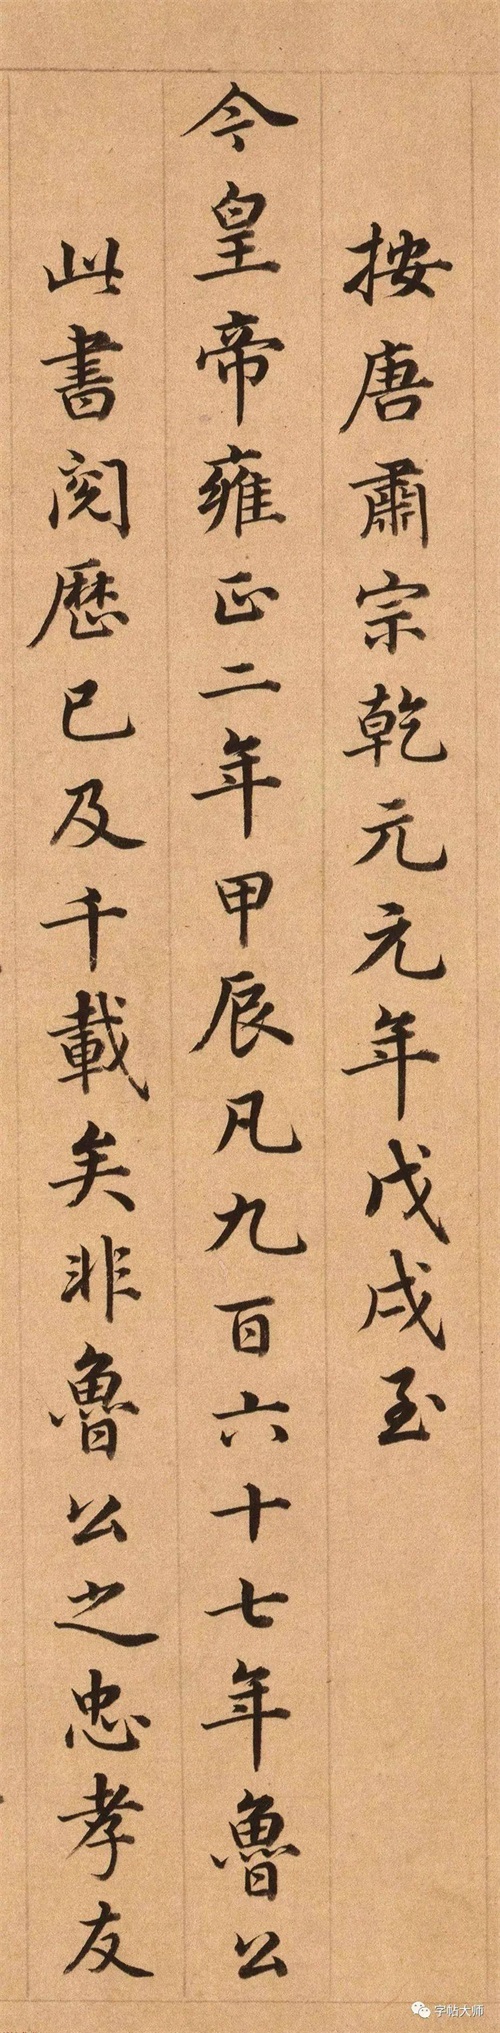 按唐肅宗乾元元年戊戌至
今皇帝雍正二年甲辰凡九百六十七年魯公
此書閱歷已及千載矣非魯公之忠孝友
字帖大师